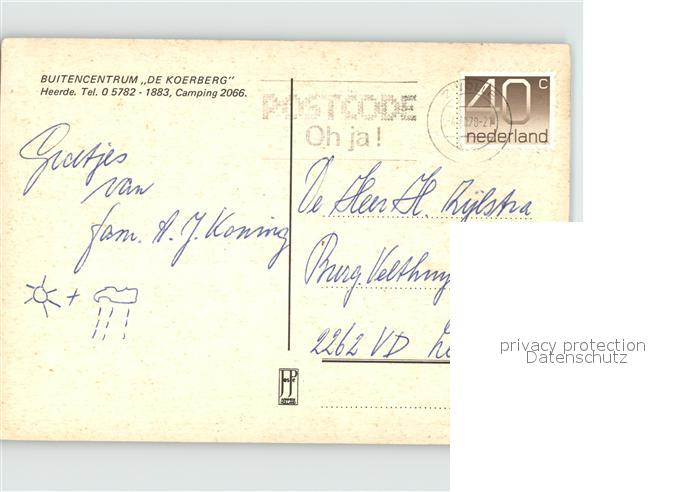 BUITENCENTRUM „DE KOERBERG"
Heerde. Tel. 0 5782 - 1883, Camping 2066.
POSTCODE
Oh ja!
40 c
nederland
Groetjes
van
fam. A. J. Koning
De Heer H. Zijlstra
Burg.
2262 VD
privacy protection
Datenschutz